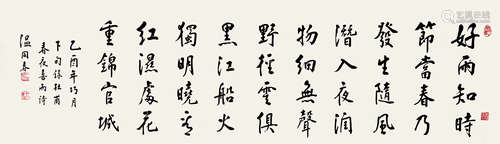 好雨知時
節當春乃
發生隨風
潛入夜潤
物細無聲
野徑雲俱
黑江船火
獨明曉看
紅濕處花
重錦官城
乙酉年巧月
下旬錄杜甫
春夜喜雨詩
温同春